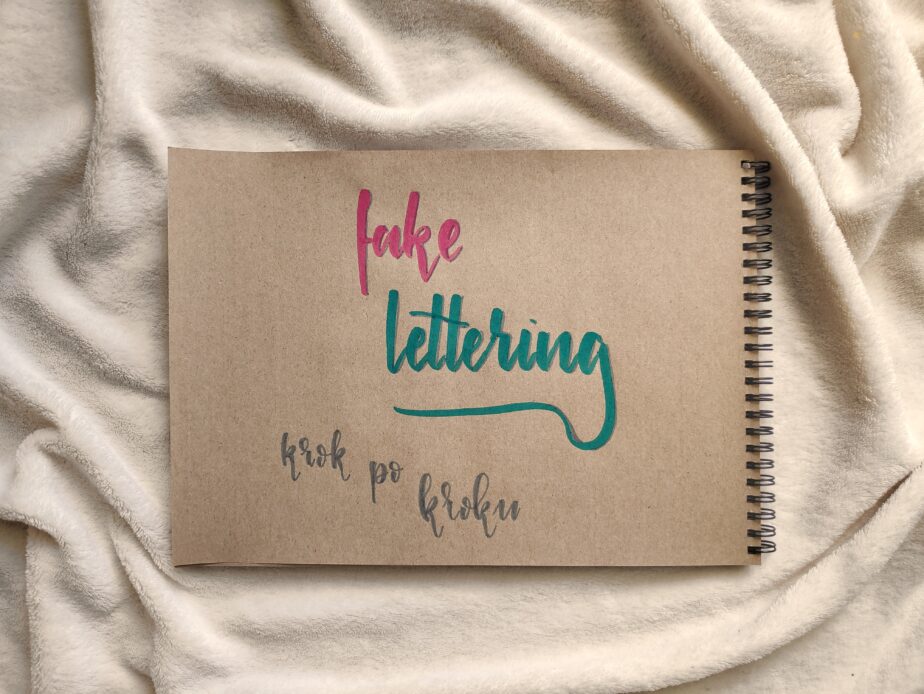 fake
lettering
krok po kroku